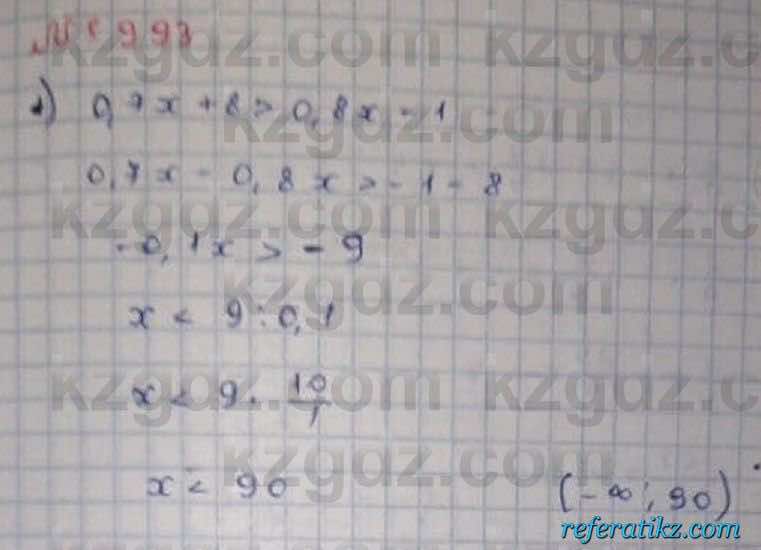 № 993
kzgdz.com kzgdz.com
1) 0,7x + 8 > 0,8x - 1
kzgdz.com kzgdz.com
0,7x - 0,8x > -1 - 8
kzgdz.com kzgdz.com
-0,1x > -9
kzgdz.com kzgdz.com
x < 9 : 0,1
x < 9 · 10/1
kzgdz.com kzgdz.com
kzgdz.com kzgdz.com
x < 90 (-∞; 90)
referatikz.com